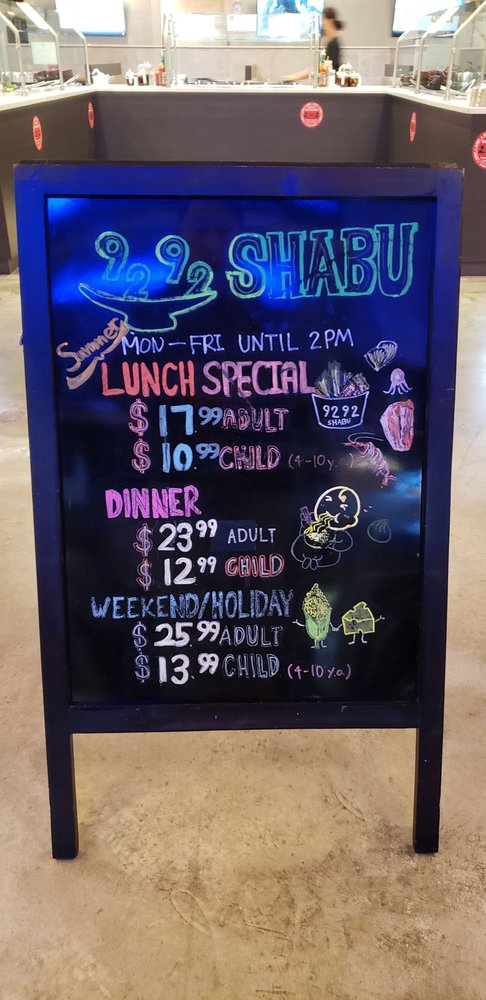 9292 SHABU
Summer
MON-FRI UNTIL 2PM
LUNCH SPECIAL
$17.99 ADULT
$10.99 CHILD (4-10 y.o.)
9292
SHABU
DINNER
$23.99 ADULT
$12.99 CHILD
WEEKEND/HOLIDAY
$25.99 ADULT
$13.99 CHILD (4-10 y.o.)